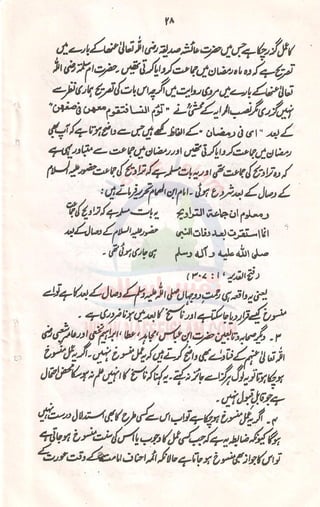 ۲۸
کا عمل گذر چکا ہے جس میں حضرت عائشہ صدیقہ رضی اللہ تعالیٰ عنھا کے بارے میں
تصریح ہے کہ وہ ماہ رمضان میں جماعت کروایا کرتی تھیں۔ حضرت ام سلمہ رضی اللہ
تعالیٰ عنھا کے بارے میں مروی روایت میں اگرچہ اس بات کی تصریح ہماری نظر سے
نہیں گزری مگر نصب الرایہ کے محشی نے " تؤم النساء فتقوم معھن فی صفھن "
کے بعد " ای فی رمضان " کے الفاظ لکھے ہیں جس سے واضح ہوتا ہے کہ آپ بھی
رمضان میں جماعت کروایا کرتی تھیں اور رمضان میں جماعت سے متبادر یہی ہے
کہ وہ تراویح کی جماعت تھی اور یہ بات مسلم ہے کہ تراویح کی جماعت حضور علیہ السلام
کے وصال کے بعد شروع ہوئی۔ امام ابن الھمام تحریر فرماتے ہیں:
ومعلوم ان جماعة التراویح یہ بات مسلم ہے کہ تراویح کی جماعت
انما استقرت بعد وفات النبی حضور علیہ السلام کے وصال کے بعد
صلی اللہ علیہ و آلہ وسلم ہی جاری ہوئی تھی۔
(فتح القدیر ۱: ۳۰۷)
یعنی یہ واقعہ ہی رحمت دو جہاں صلی اللہ علیہ وسلم کے وصال کے بعد کا ہے تو اسے
منسوخ کیسے قرار دیا جا سکتا ہے اور ناسخ کا بعد میں ہونا ضروری ہے۔
۲۔ دیگر صحابہ و تابعین حضرت ابن عباس، مجاہد، عطا، ابراہیم نخعی اور عامر شعبی رضی
اللہ تعالیٰ عنہم کے فتاوٰے بھی واضح کر رہے ہیں کہ یہ عمل منسوخ نہیں۔ اگر یہ عمل منسوخ
ہو چکا ہوتا تو یہ لوگ ہرگز اسے جائز نہ کہتے۔ یہ کہنا کہ ناسخ کا انہیں علم نہ ہو سکا محض احتمال
ہے جو قابل قبول نہیں۔
۳۔ اگر یہ عمل منسوخ ہو چکا ہے تو اب اس سے کسی طرح کا بھی استدلال درست نہیں
ہوگا کیونکہ ضابطہ یہ ہے کہ جب کسی عمل کا وجوب یا اس کی سنت منسوخ ہو جاتی ہے
تو اس کا جواز بھی منسوخ ہو جاتا ہے حالانکہ ائمہ احناف امامت کے وقت عورت کے